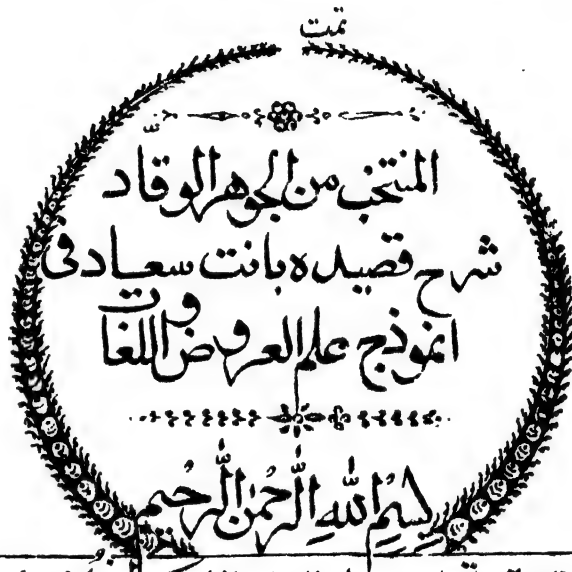 تمت
المنتخب من الجوهر الوقّاد
شرح قصيده بانت سعاد فى
انموذج علم العروض و اللغات
بِسْمِ اللّٰهِ الرَّحْمٰنِ الرَّحِيمِ